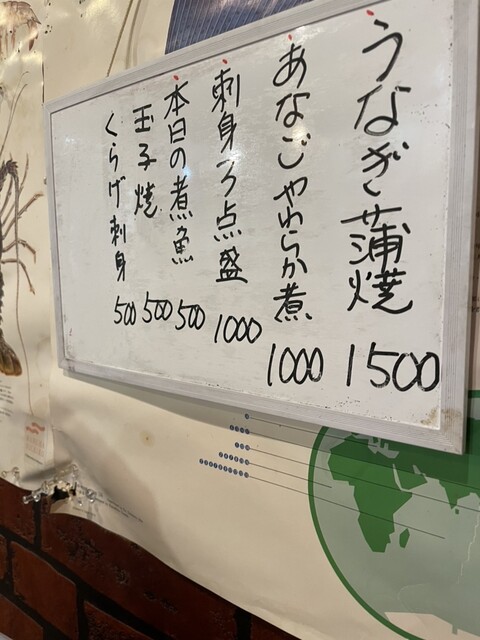 うなぎ蒲焼 1500
あなごやわらか煮 1000
刺身3点盛 1000
本日の煮魚 500
玉子焼 500
くらげ刺身 500